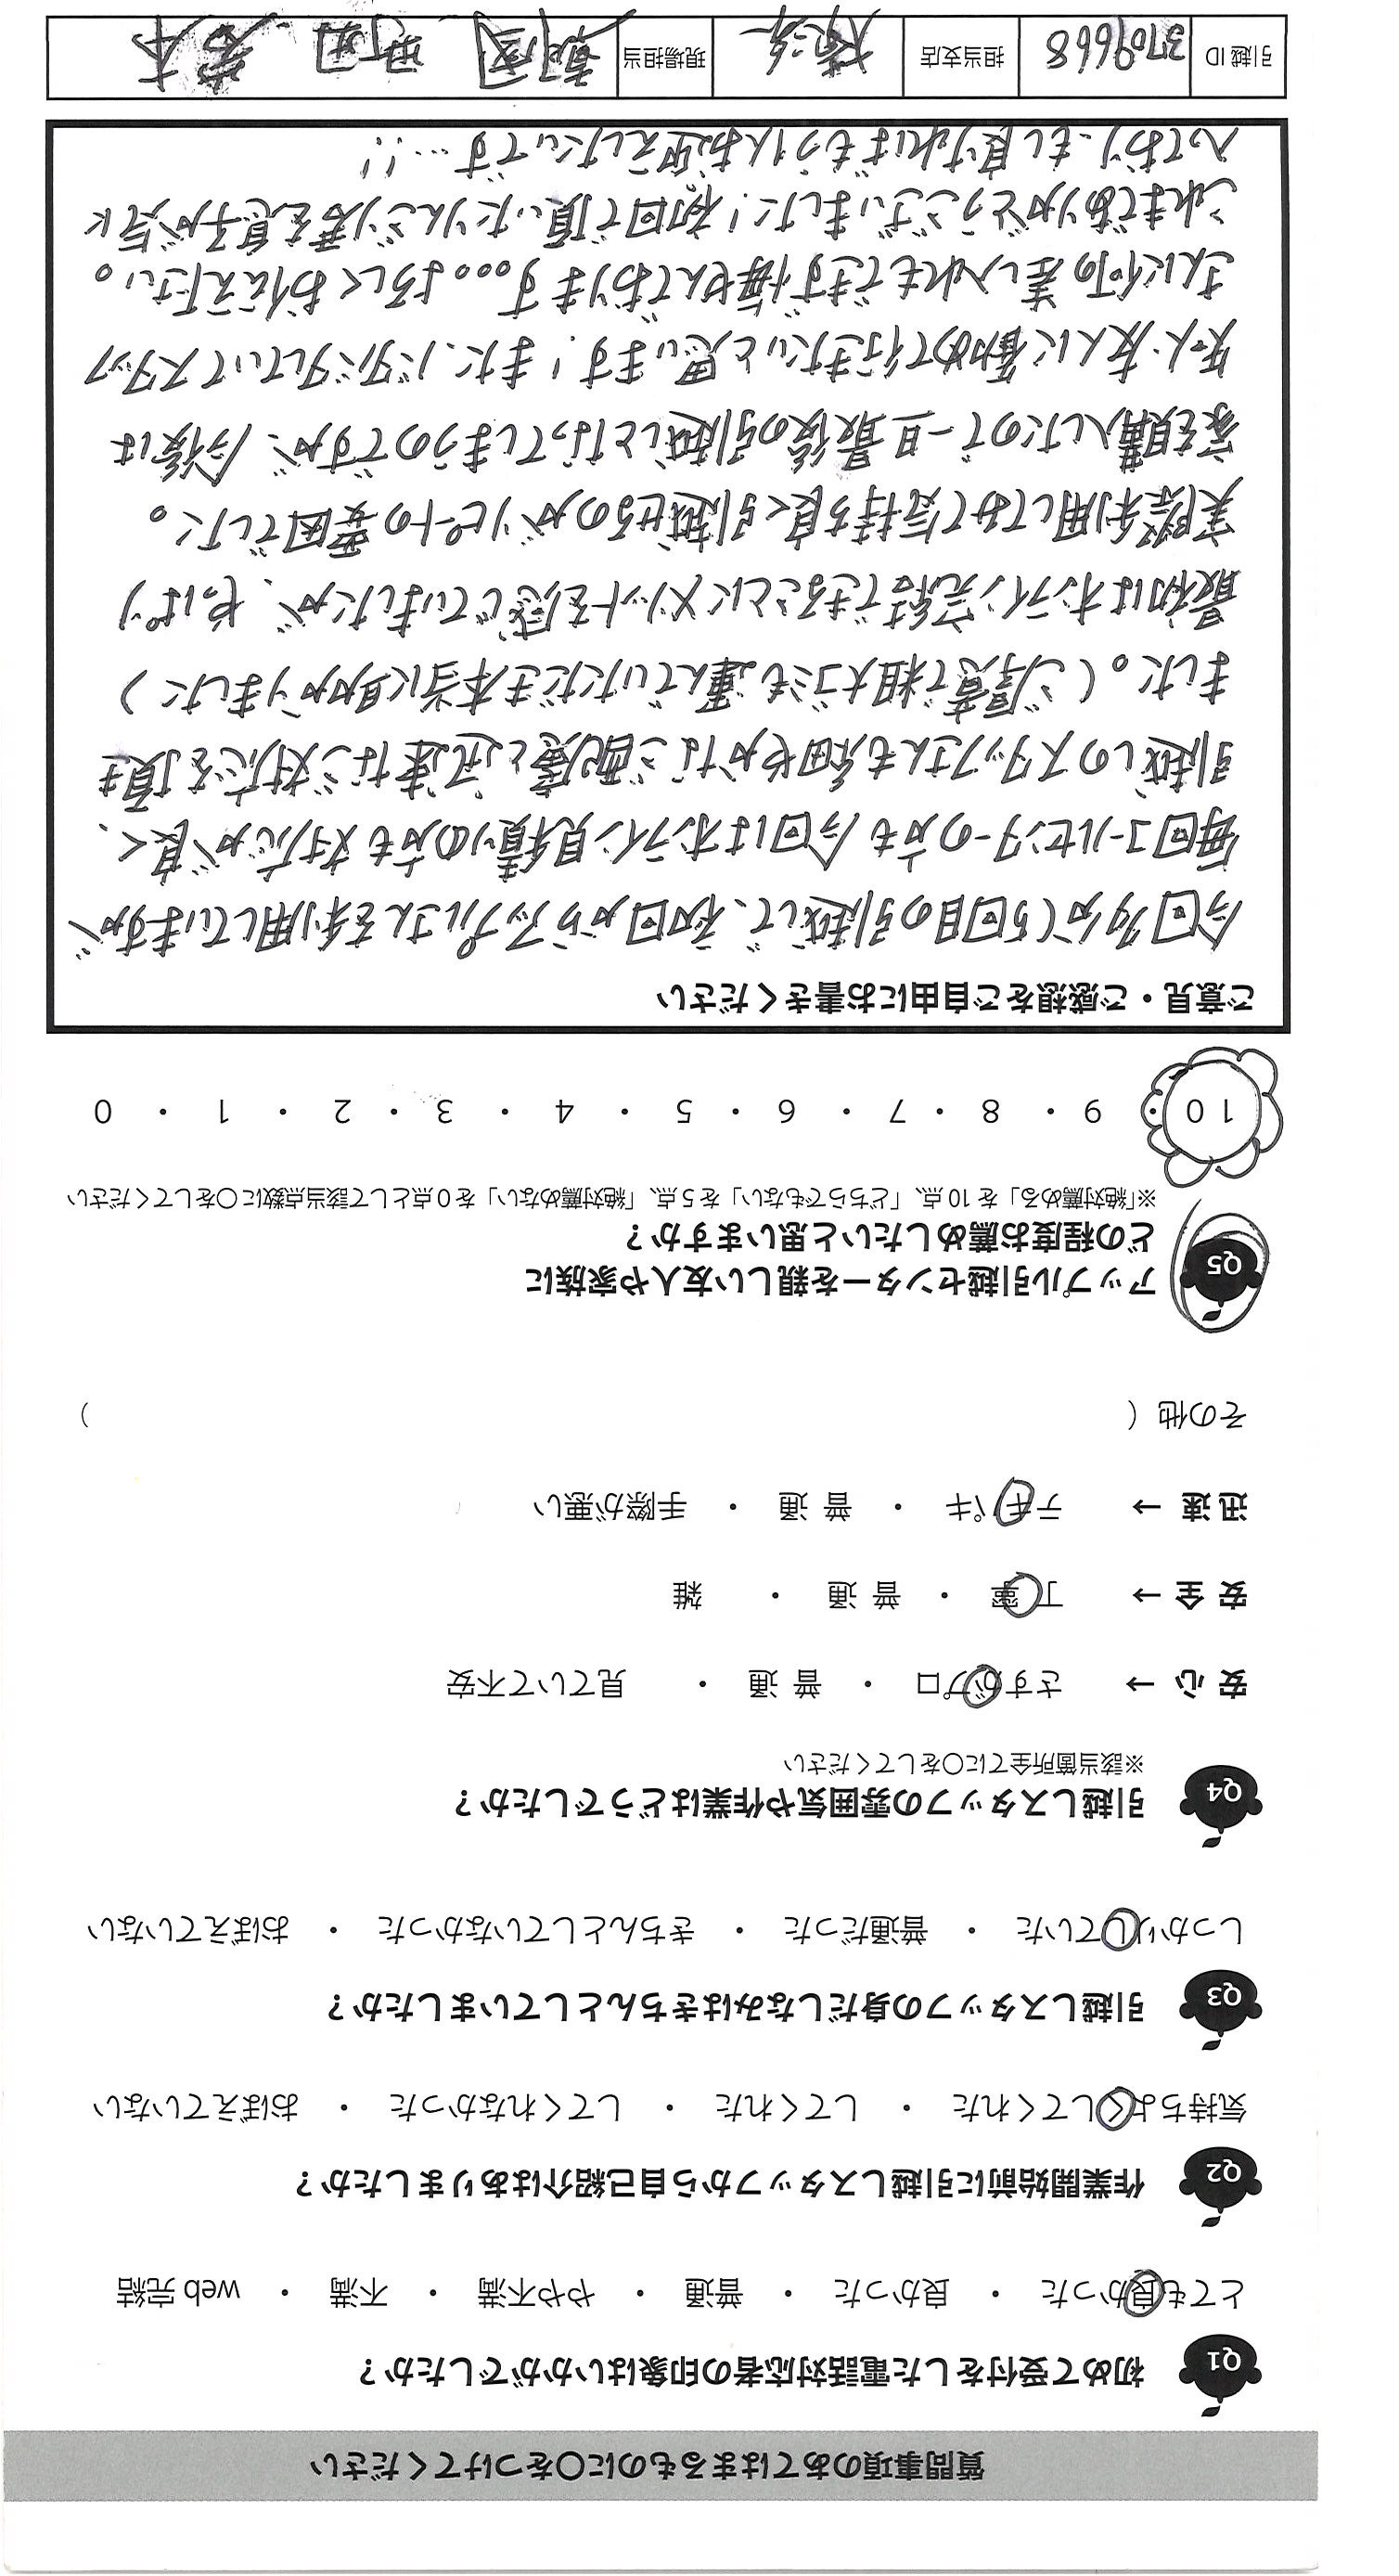 質問事項のあてはまるものに○をつけてください
Q1 初めて受付をした電話対応者の印象はいかがでしたか？
とても良かった ・ 良かった ・ 普通 ・ やや不満 ・ 不満 ・ web 完結
Q2 作業開始前に引越しスタッフから自己紹介はありましたか？
気持ちよくしてくれた ・ してくれた ・ してくれなかった ・ おぼえていない
Q3 引越しスタッフの身だしなみはきちんとしていましたか？
しっかりしていた ・ 普通だった ・ きちんとしていなかった ・ おぼえていない
Q4 引越しスタッフの雰囲気や作業はどうでしたか？
※該当箇所全てに○をしてください
安 心 → さすがプロ ・ 普 通 ・ 見ていて不安
安 全 → 丁 寧 ・ 普 通 ・ 雑
迅 速 → テキパキ ・ 普 通 ・ 手際が悪い
その他（ ）
Q5 アップル引越センターを親しい友人や家族に
どの程度お薦めしたいと思いますか？
※「絶対薦める」を 10 点、「どちらでもない」を 5 点、「絶対薦めない」を 0 点として該当点数に○をしてください
10 ・ 9 ・ 8 ・ 7 ・ 6 ・ 5 ・ 4 ・ 3 ・ 2 ・ 1 ・ 0
ご意見・ご感想をご自由にお書きください
今回多分(5回目の引越しで、初回からアップルさんを利用していますが
毎回コールセンターの方も今回はオンライン見積りの方も対応が良く、
引越しのスタッフさんも細やかなご配慮と迅速なご対応を頂き
ました。(ご厚意で粗大ゴミも運んでいただき本当に助かりました)
最初はオンライン完結できることにメリットを感じていましたが、やっぱり
実際利用してみて気持ち良く引越せるのがリピートの要因でした。
家を購入したので一旦最後の引越しとなってしまうのですが、今後は
知人・友人に奨めて行きたいと思います! また、バタバタしていてスタッフ
さんに何の差し入れもできず悔んでおります。。。よろしくお伝え下さい。
これまでありがとうございました! 初回で頂いたりんごり君を息子が気に
入っており、もし良ければもう1人お迎えしたいです…!!
引越 ID 3709668 担当支店 横浜 現場担当